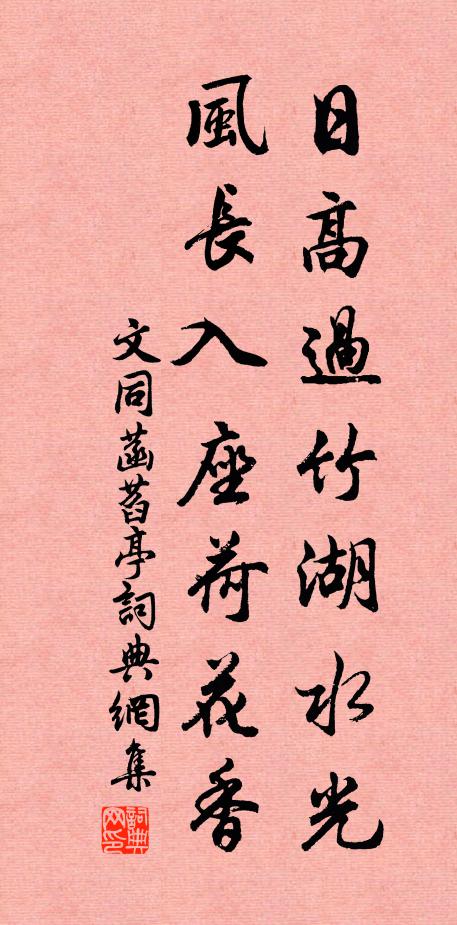 日高過竹湖水光
風長入座荷花香
文同菡萏亭詞典網集
詞典网印